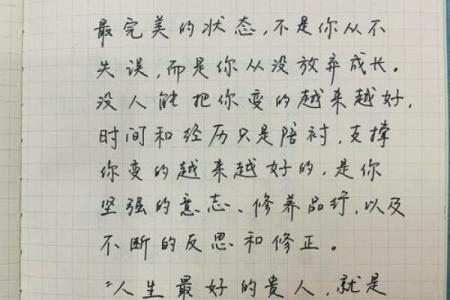 最完美的状态,不是你从不
失误,而是你从没放弃成长。
没人能把你变的越来越好,
时间和经历只是陪衬,支撑
你变的越来越好的,是你
坚强的意志、修养品行,以及
不断的反思和修正。
“人生最好的贵人,就是